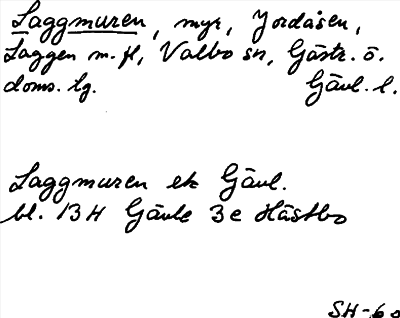 Laggmuren, myr, Jordåsen,
Laggen m. fl, Valbo sn, Gästr. ö.
doms. lg. Gävl. l.
Laggmuren ek Gävl.
bl. 13H Gävle 3e Hästbo
SH-60